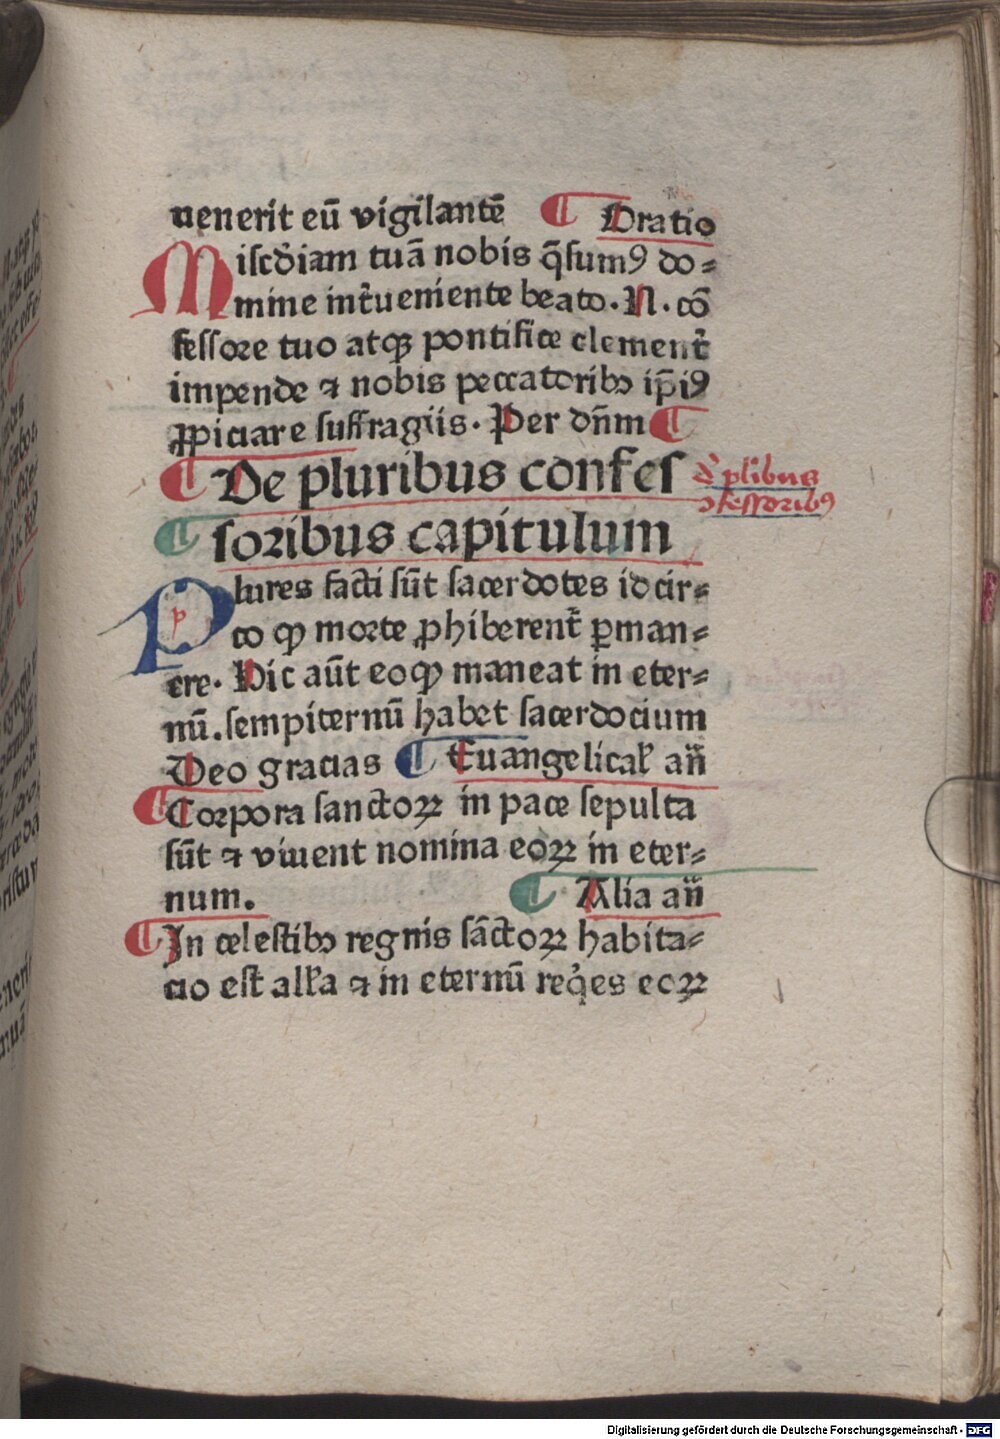 uenerit eū vigilantē ¶ Oratio
Misc̄diam tuā nobis q̄sumꝰ do⸗
mine int̄ueniente beato. N. cō
fessore tuo atqꝫ pontifice clement̄
impende ⁊ nobis peccatoribꝫ ip̄iꝰ
ꝓpiciare suffragiis. Per dn̄m ¶
¶ De pluribus confes
¶ soribus capitulum
d̄ pl̄ibus
ↄfessoribꝰ
Plures facti sūt sacerdotes idcir⸗
co qꝫ morte ꝓhiberent̄ ꝑman⸗
ere. Hic aūt eo qꝫ maneat in eter⸗
nū. sempiternū habet sacerdocium
Deo gracias ¶ Euangelicaꝉ an̄
¶ Corpora sanctoꝝ in pace sepulta
sūt ⁊ viuent nomina eoꝝ in eter⸗
num. ¶ Alia an̄
¶ In celestibꝫ regnis sāctoꝝ habita⸗
cio est all̄a ⁊ in eternū req̄es eoꝝ
Digitalisierung gefördert durch die Deutsche Forschungsgemeinschaft - DFG